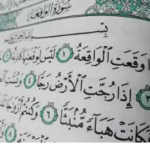 سُورَةُ الوَاقِعَةِ
بِسْمِ
وَقَعَتِ ٱلْوَاقِعَةُ ١ لَيْسَ لِوَقْعَتِهَا
٣ إِذَا رُجَّتِ ٱلْأَرْضُ رَجًّا ٤
فَكَانَتْ هَبَآءً مُّنۢبَثًّا ٦ وَكُنتُمْ